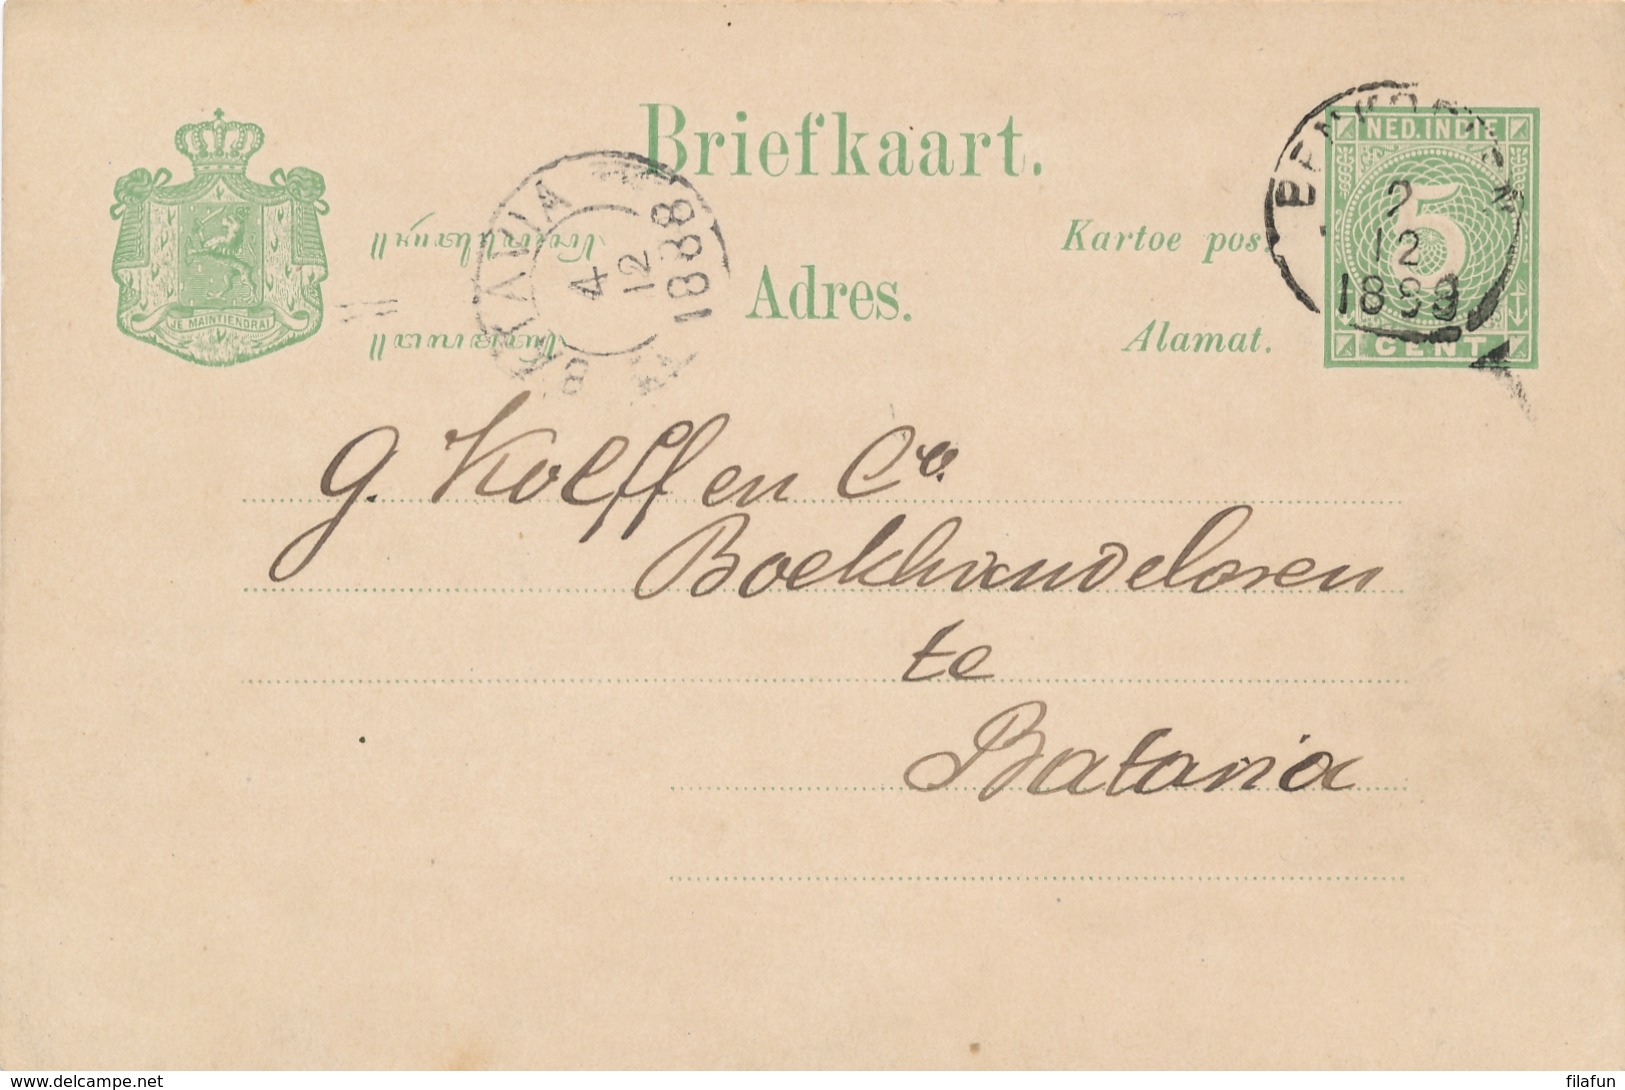 Briefkaart.
NED. INDIE
5
CENT
Kartoe pos
Adres.
Alamat.
JE MAINTIENDRAI
BATAVIA
4
12
1888
2
12
188
G. Kolff en Co.
Boekhandelaren
te
Batavia
delcampe.net
filafun